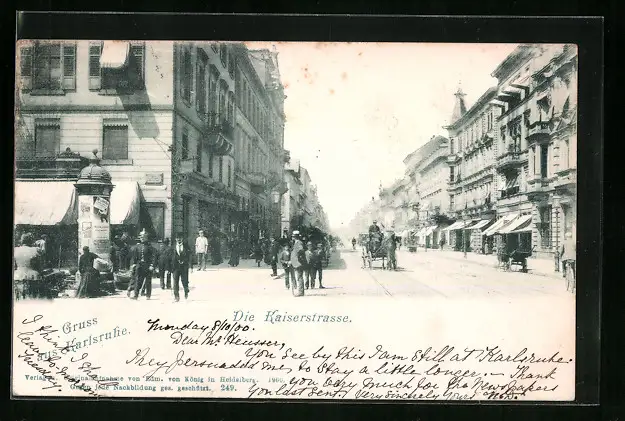 Die Kaiserstrasse.
Gruss
aus Karlsruhe.
Monday 8/10/00.
Dear Mr Heusser,
You See by this I am Still at Karlsruhe.
They persuaded me, to Stay a little longer. — Thank
you very much for the Newspapers
you last Sent. Very Sincerely Yours
I think I shall
Verlag Original-Aufnahme von Edm. von König in Heidelberg. 1900.
Gegen jede Nachbildung ges. geschützt. 249.